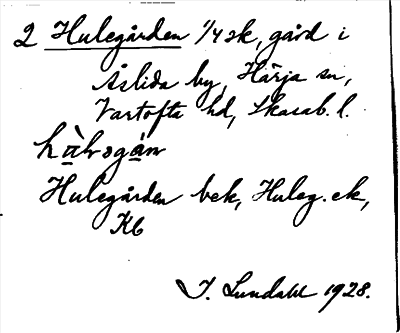 2 Hulegården 1/4 sk, gård i
Åslida by, Härja sn,
Vartofta hd, Skarab. l.
Hulegården bek, Huleg. ek,
Kb
I. Lundahl 1928.